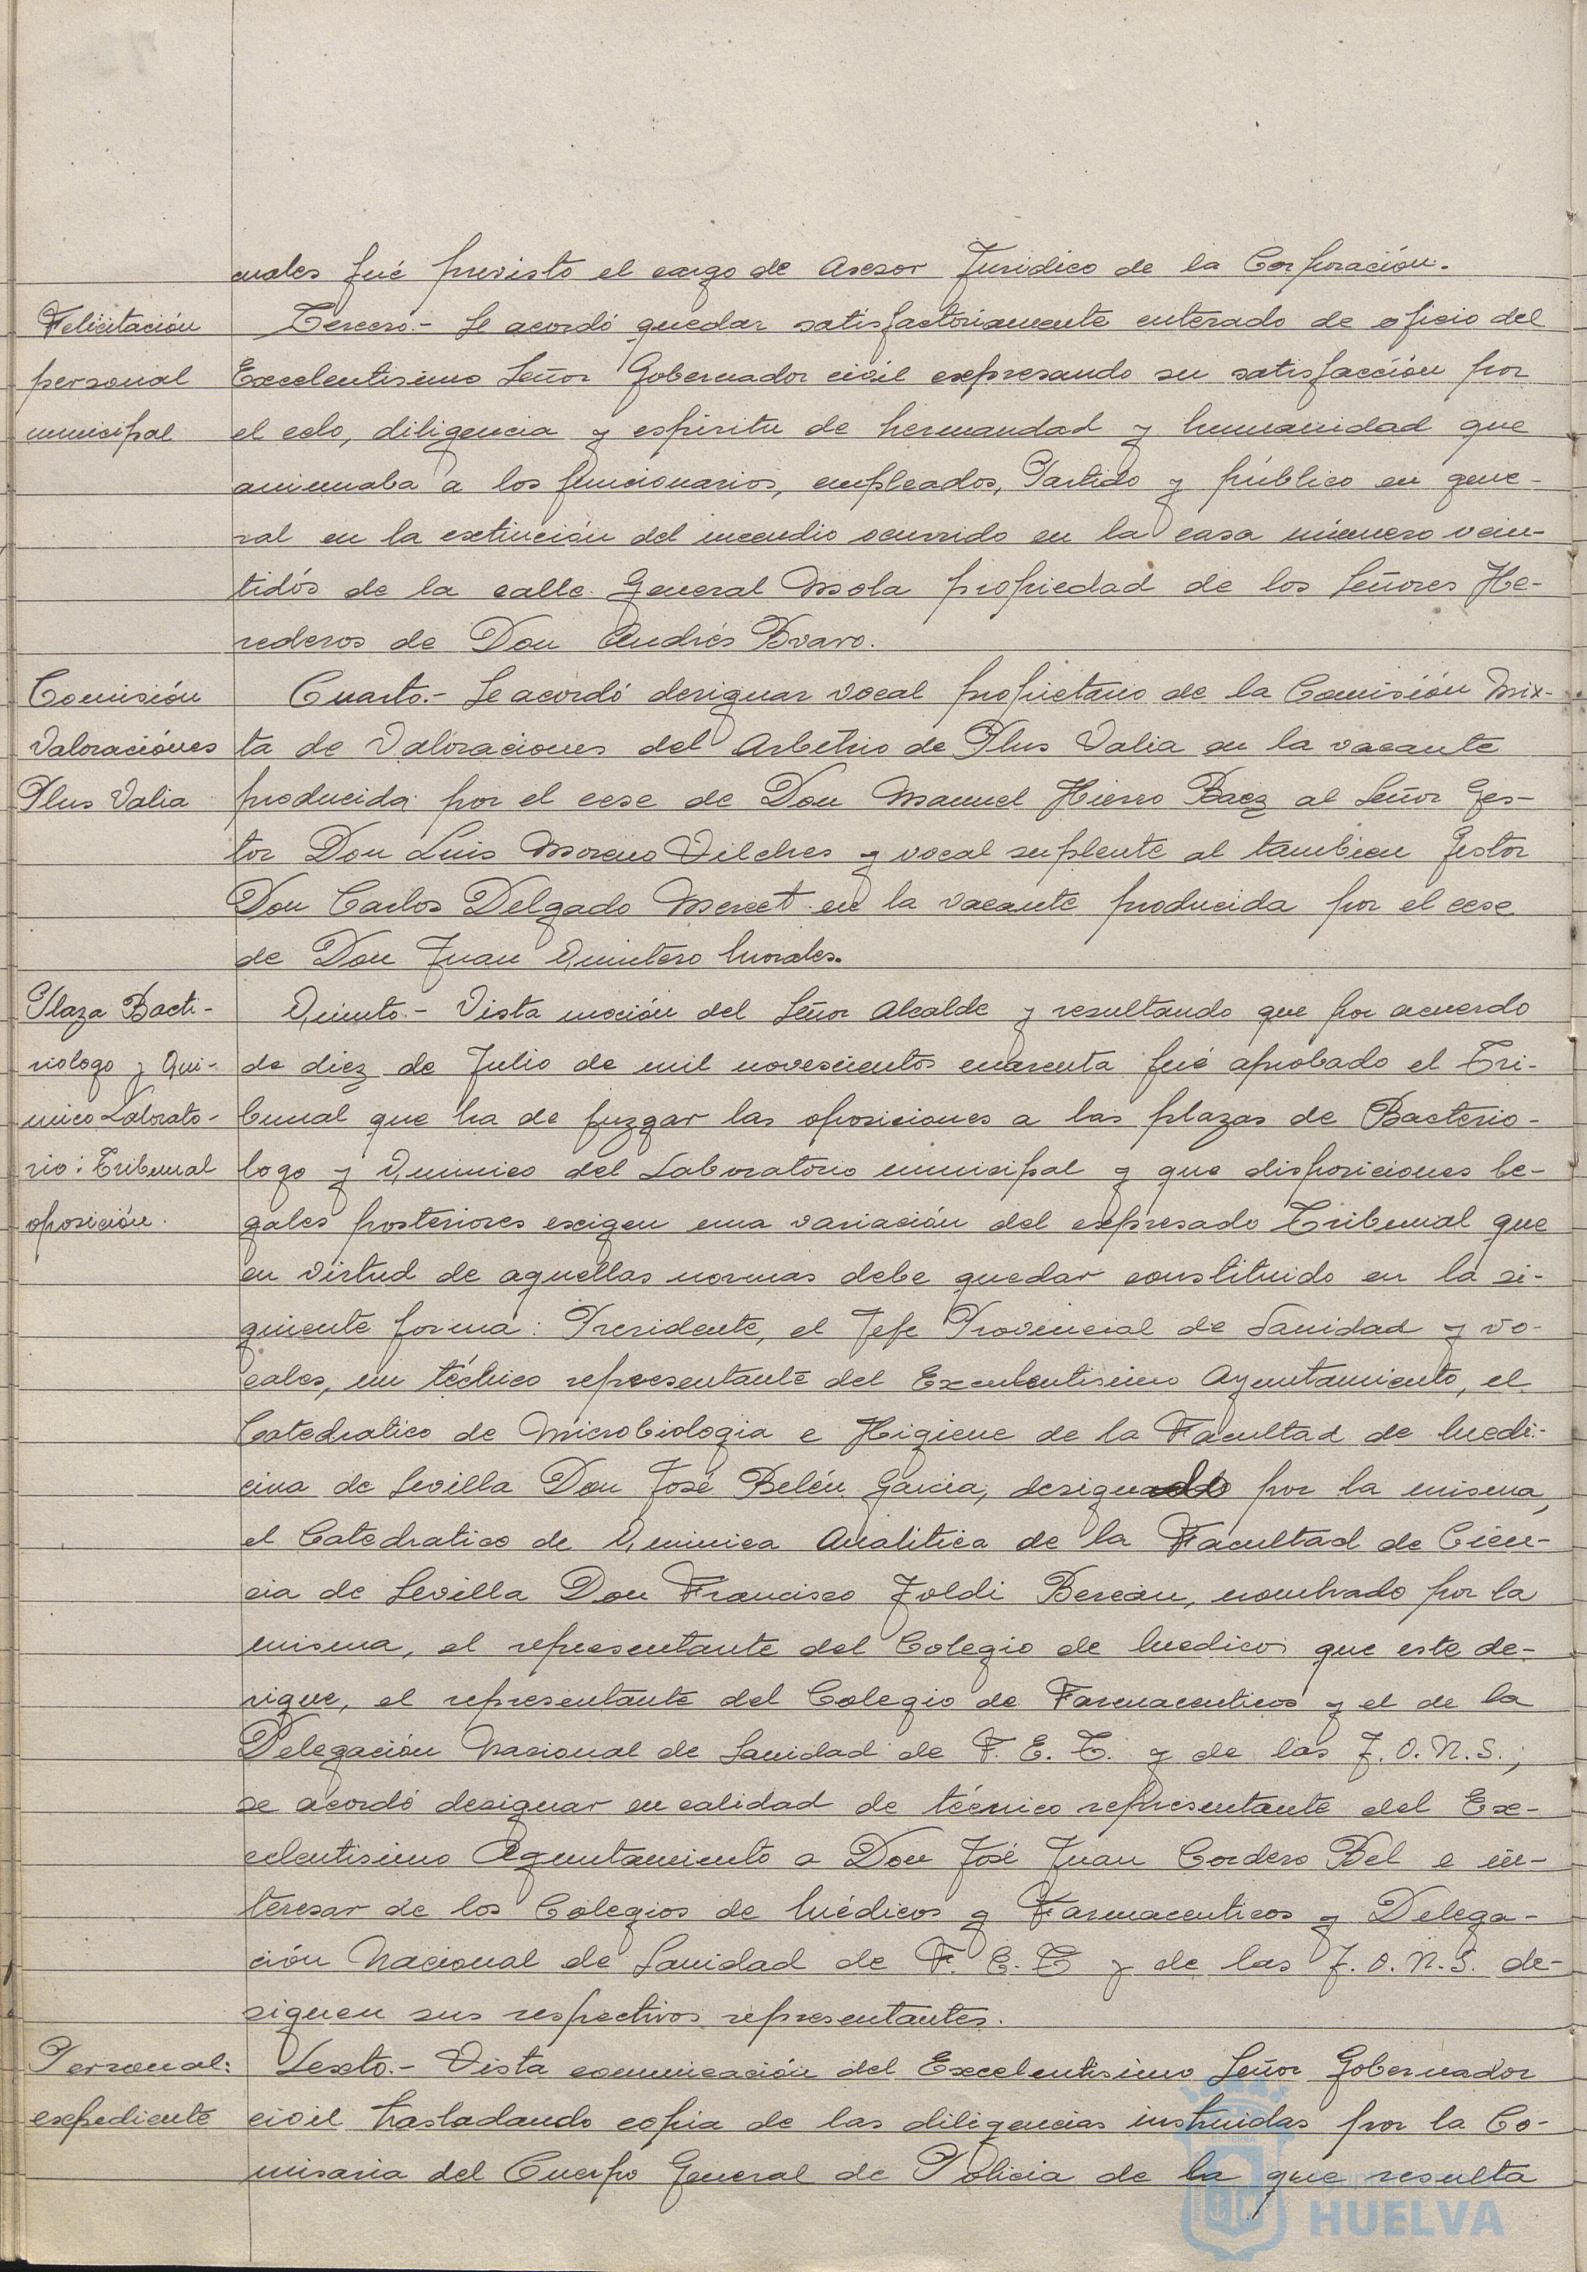 cuales fué previsto el cargo de Asesor Juridico de la Corporación.
Felicitación personal municipal
Tercero.- Se acordó quedar satisfactoriamente enterado de oficio del
Excelentisimo Señor Gobernador civil expresando su satisfacción por
el celo, diligencia y espiritu de hermandad y humanidad que
animaba a los funcionarios, empleados, Partido y público en gene-
ral en la extinción del incendio ocurrido en la casa número vein-
tidós de la calle General Mola propiedad de los Señores He-
rederos de Don Andrés Bravo.
Comisión Valoraciónes Plus Valia
Cuarto.- Se acordó designar vocal propietario de la Comisión Mix-
ta de Valoraciones del Arbitrio de Plus Valia en la vacante
producida por el cese de Don Manuel Hierro Baez al Señor Ges-
tor Don Luis Moreno Vilches y vocal suplente al tambien Gestor
Don Carlos Delgado Mercet en la vacante producida por el cese
de Don Juan Quintero Morales.
Plaza Bacti-
riologo y Qui-
mico Laborato-
rio: Tribunal
oposición.
Quinto.- Vista moción del Señor Alcalde y resultando que por acuerdo
de diez de Julio de mil novescientos cuarenta fué aprobado el Tri-
bunal que ha de juzgar las oposiciones a las plazas de Bacterio-
logo y Quimico del Laboratorio municipal y que disposiciones le-
gales posteriores exigen una variación del expresado Tribunal que
en virtud de aquellas normas debe quedar constituido en la si-
guiente forma: Presidente, el Jefe Provincial de Sanidad y vo-
cales, un técnico representante del Excelentisimo Ayuntamiento, el
Catedratico de Microbiologia e Higiene de la Facultad de Medi-
cina de Sevilla Don José Belén Garcia, designado por la misma,
el Catedratico de Quimica Analitica de la Facultad de Cien-
cia de Sevilla Don Francisco Yoldi Bereau, nombrado por la
misma, el representante del Colegio de Medicos que este de-
sigue, el representante del Colegio de Farmaceuticos y el de la
Delegación Nacional de Sanidad de F. E. T. y de las J. O. N. S.,
se acordó designar en calidad de técnico representante del Ex-
celentisimo Ayuntamiento a Don José Juan Cordero Bel e in-
teresar de los Colegios de Médicos y Farmaceuticos y Delega-
ción Nacional de Sanidad de F. E. T y de las J. O. N. S. de-
siguen sus respectivos representantes.
Personal: expediente
Sexto.- Vista comunicación del Excelentisimo Señor Gobernador
civil trasladando copia de las diligencias instruidas por la Co-
misaria del Cuerpo General de Policia de la que resulta
HUELVA